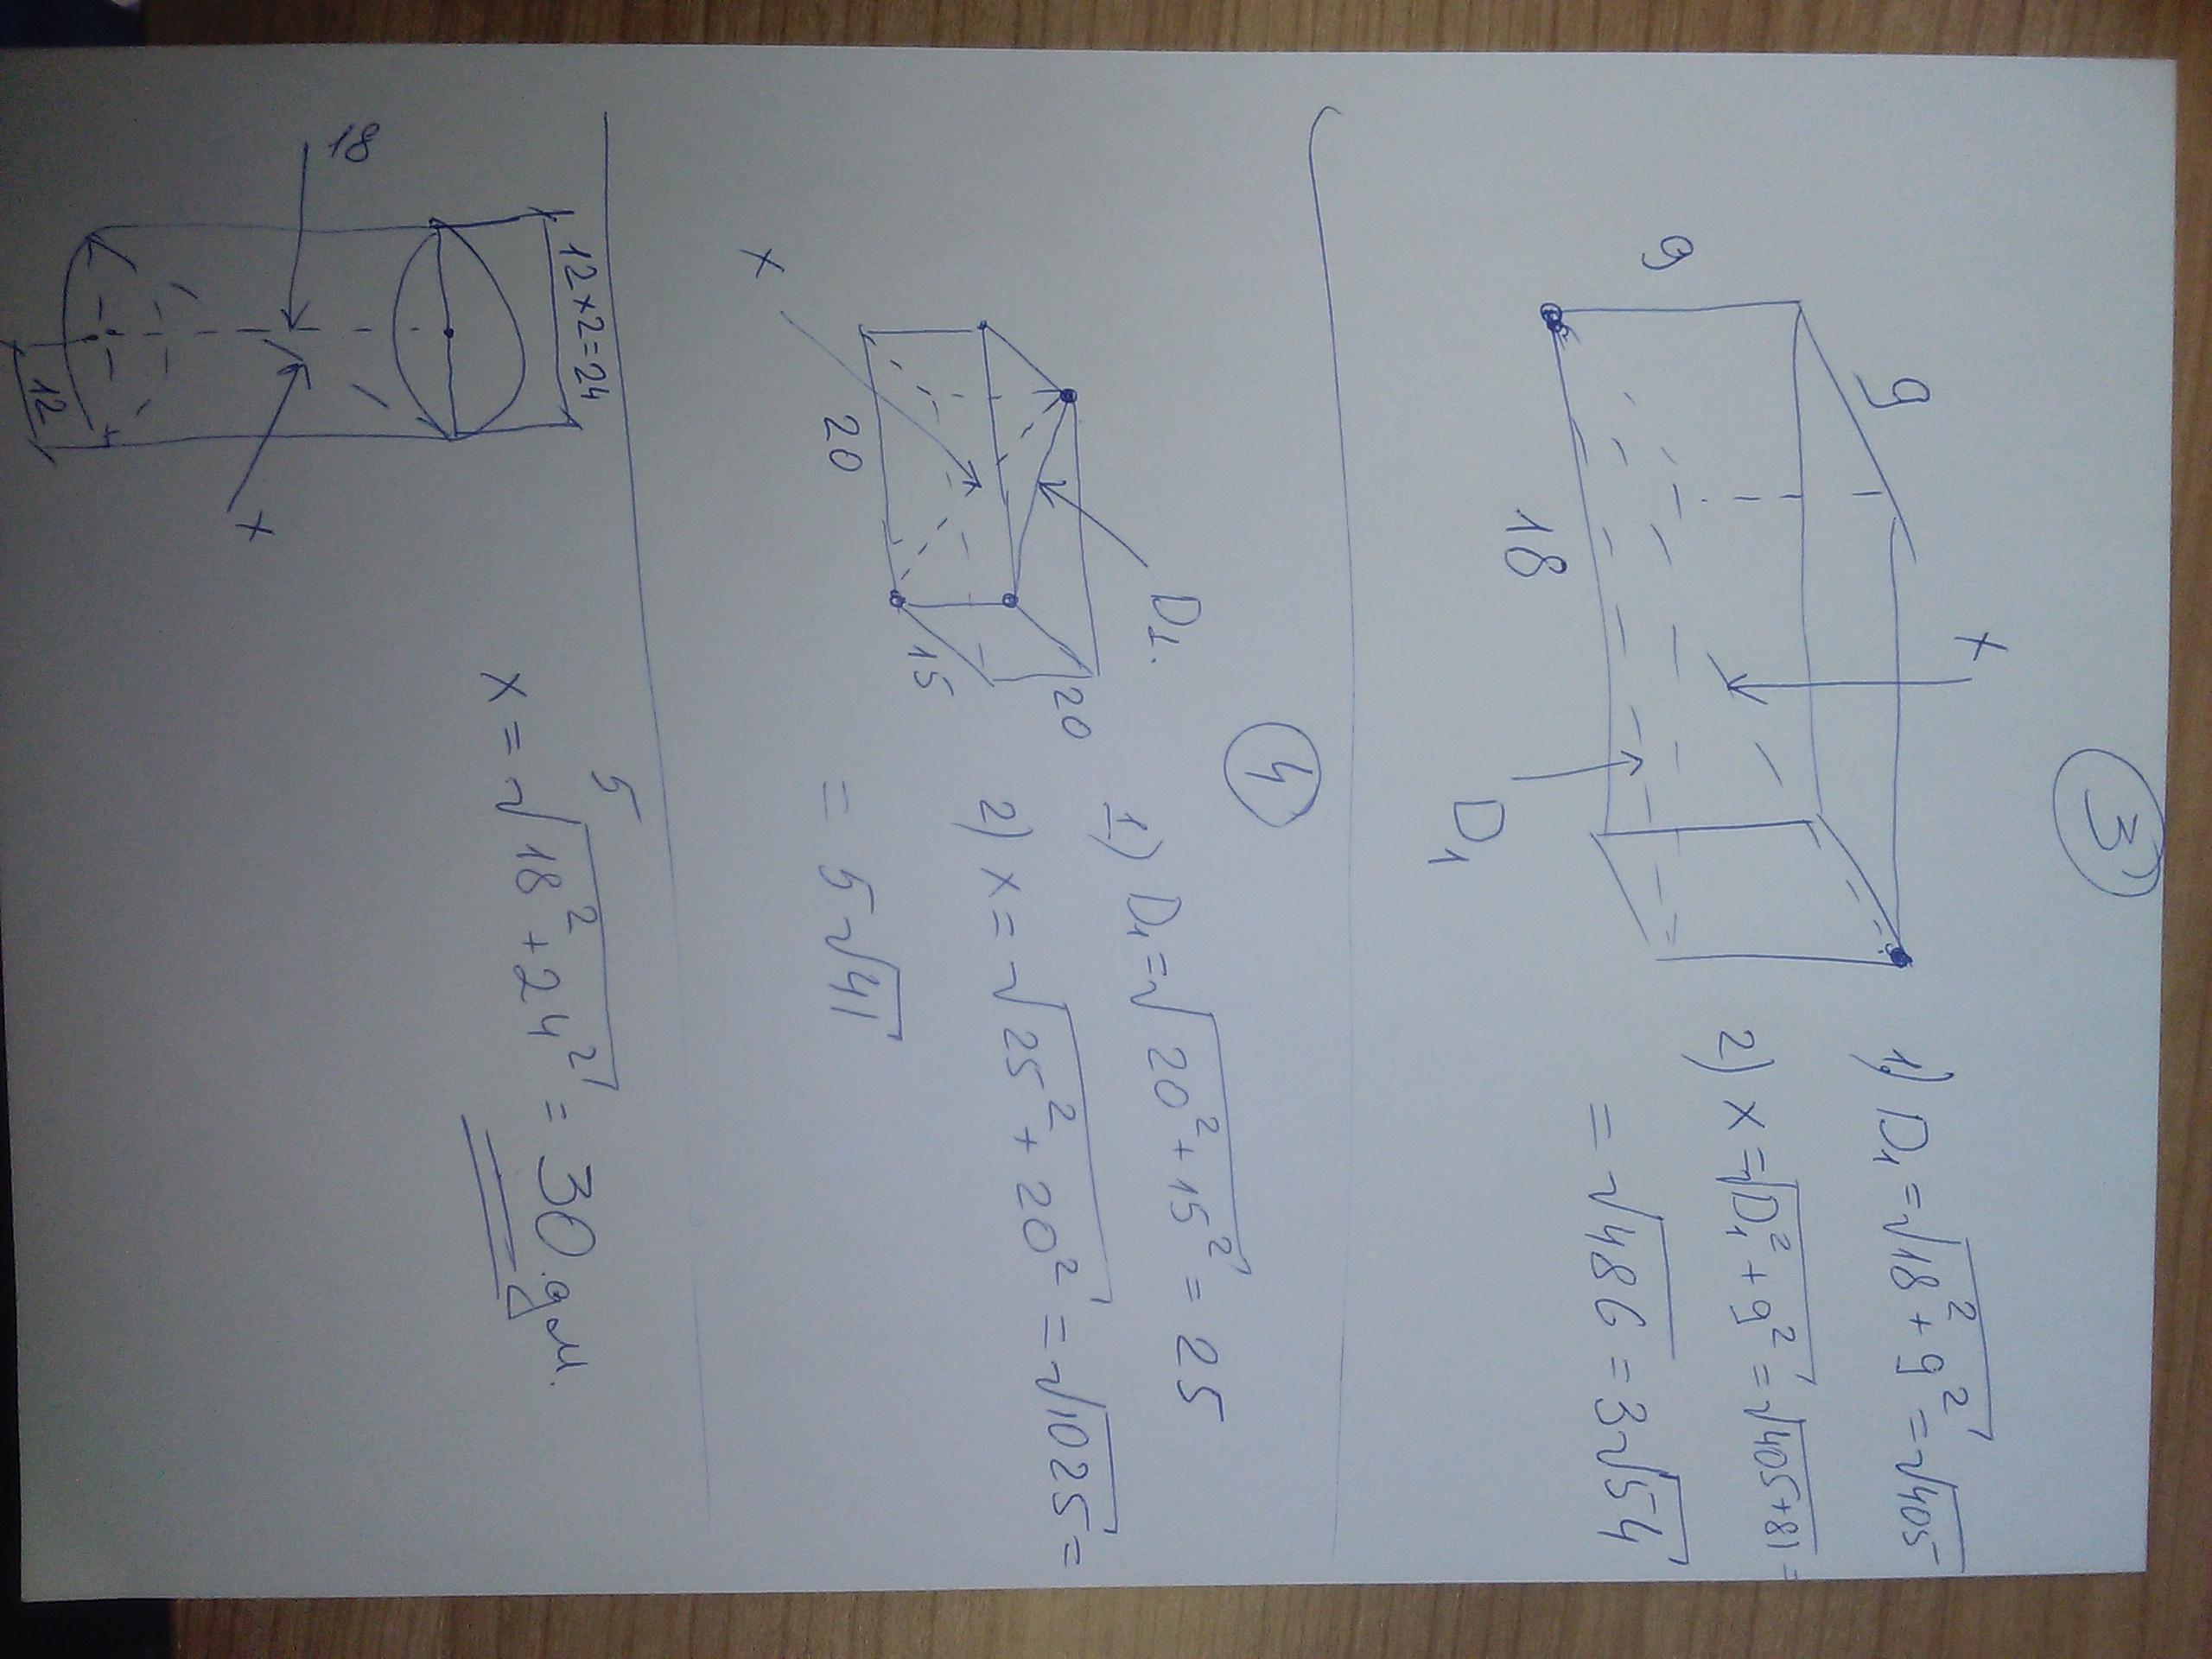 3)
9
9
18
x
D₁
1) D₁ = √18² + 9² = √405
2) x = √D₁² + 9² = √405+81 =
= √486 = 3√54
4
x
20
15
20
D1.
1) D₁ = √20² + 15² = 25
2) x = √25² + 20² = √1025 =
= 5√41
5
18
12×2=24
12
x
x = √18² + 24² = 30 дм.